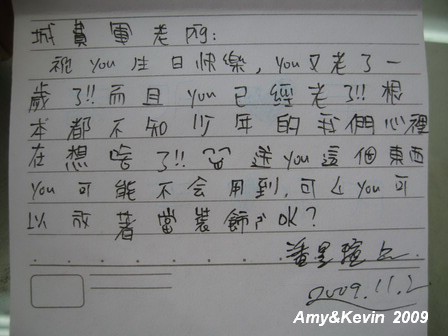 城費軍老師:
祝you生日快樂,you又老了一
歲了!!而且you已經老了!!根
本都不知少年的我們心裡
在想啥了!!送you這個東西
you可能不会用到,可以you可
以放著當裝飾ㄕOK?
2009.11.2
Amy&Kevin 2009